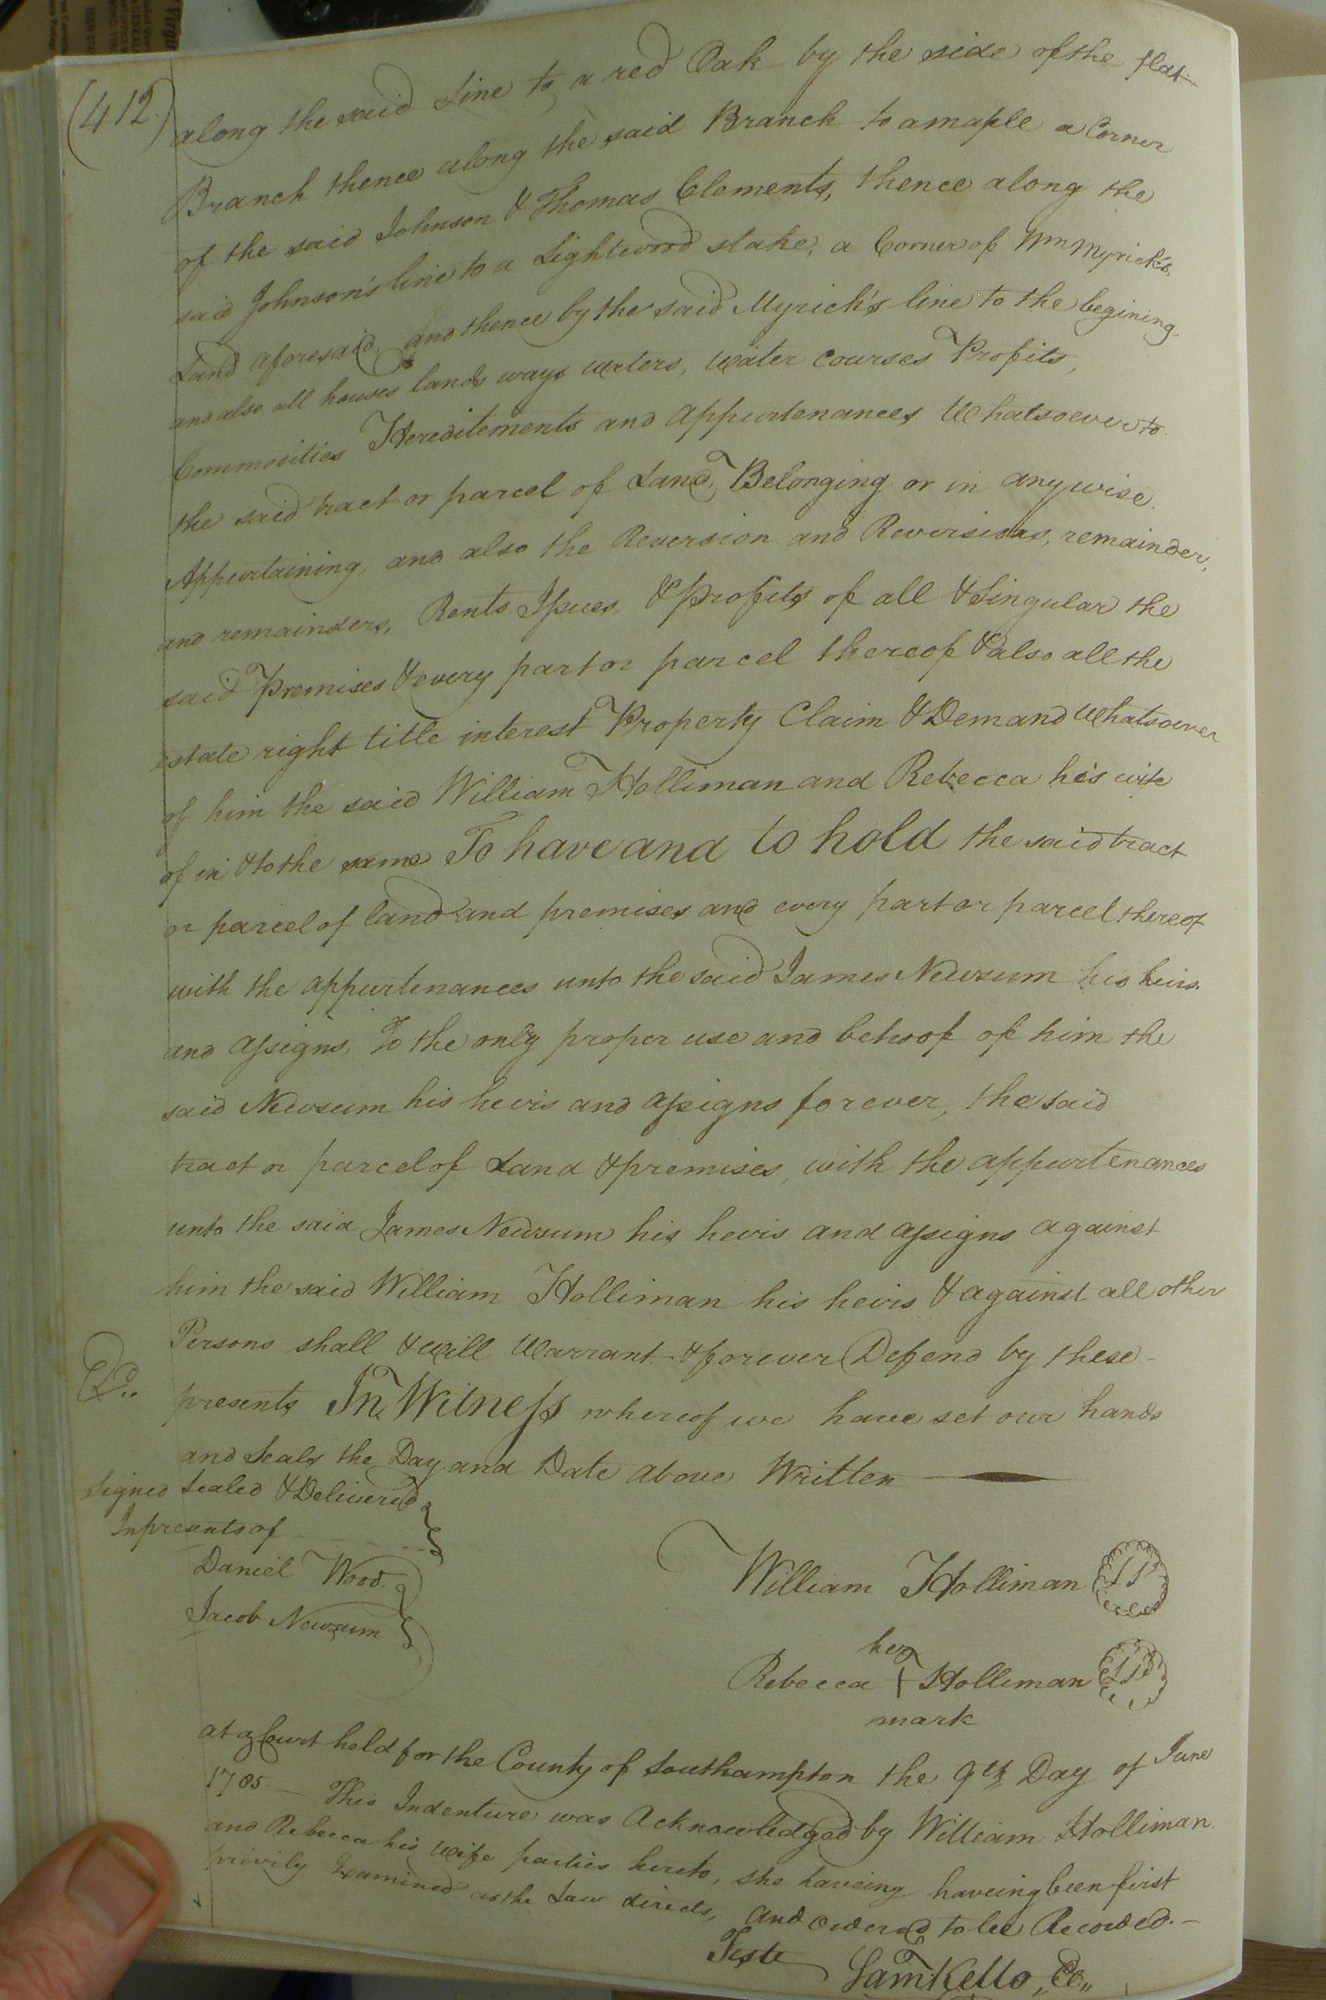 (412)
along the said Line to a red Oak by the side of the flat
Branch thence along the said Branch to a maple a Corner
of the said Johnson & Thomas Clements, thence along the
said Johnson's line to a Lightwood stake, a Corner of Wm Myrick's
Land aforesaid, and thence by the said Myrick's line to the begining.
and also all houses lands ways waters, water courses Profits,
Commodities Hereditements and appurtenances Whatsoever to
the said tract or parcel of Land, Belonging or in anywise
Appurtaining, and also the Reversion and Reversions, remainder,
and remainders, Rents Issues & profits of all & Singular the
said Premises & every part or parcel thereof & also all the
estate right title interest Property Claim & Demand Whatsoever
of him the said William Holliman and Rebecca his wife
of in & to the same To have and to hold the said tract
or parcel of land and premises and every part or parcel thereof
with the appurtenances unto the said James Newsum his heirs
and assigns, To the only proper use and behoof of him the
said Newsum his heirs and assigns forever, the said
tract or parcel of Land & premises, with the appurtenances
unto the said James Newsum his heirs and assigns against
him the said William Holliman his heirs & against all other
Persons shall & will Warrant & forever Defend by these
presents In Witness whereof we have set our hands
and Seals the Day and Date above Written
Signed Sealed & Delivered
In presents of
Daniel Wood
Jacob Newsum
William Holliman LS
her
Rebecca + Holliman LS
mark
at a Court held for the County of Southampton the 9th Day of June
1785. This Indenture was Acknowledged by William Holliman
and Rebecca his Wife parties hereto, she haveing haveing been first
privily Examined as the Law directs, and ordered to be Recorded.
Teste
Saml Kello, Cl,,